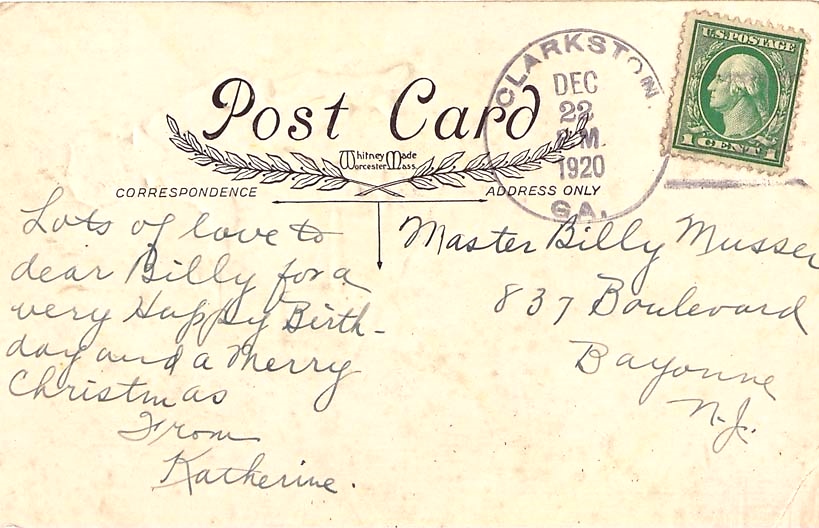 Post Card
Whitney Made
Worcester Mass.
CORRESPONDENCE
ADDRESS ONLY
CLARKSTON
DEC
22
P.M.
1920
GA.
U.S. POSTAGE
1 CENT 1
Lots of love to
dear Billy for a
very Happy Birth-
day and a Merry
Christmas
From
Katherine.
Master Billy Musser
837 Boulevard
Bayonne
N.J.